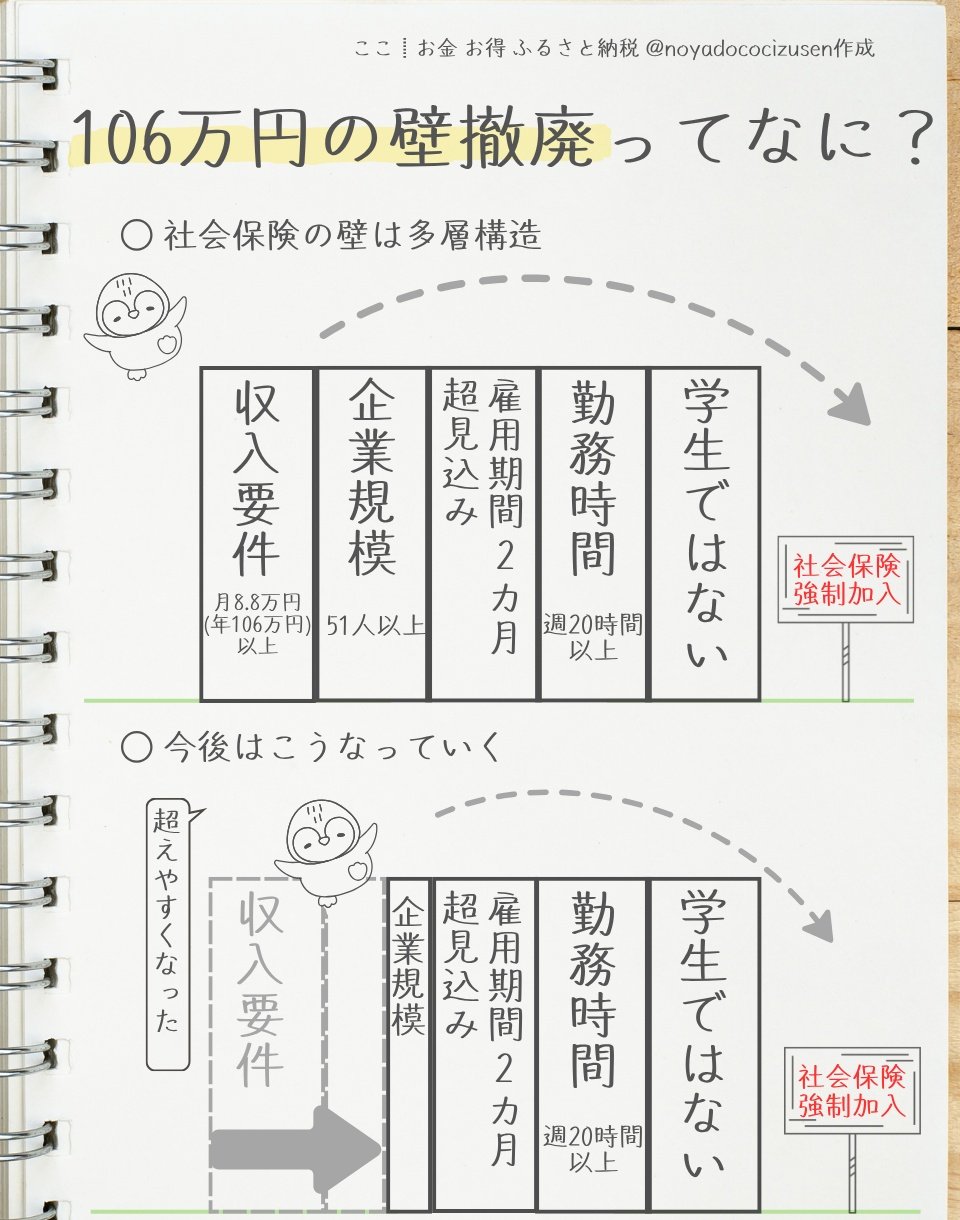 ここ┋お金 お得 ふるさと納税 @noyadococizusen作成
106万円の壁撤廃ってなに？
○ 社会保険の壁は多層構造
収入要件
月8.8万円
(年106万円)
以上
企業規模
51人以上
雇用期間2カ月
超見込み
勤務時間
週20時間
以上
学生ではない
社会保険
強制加入
○ 今後はこうなっていく
超えやすくなった
収入要件
企業規模
雇用期間2カ月
超見込み
勤務時間
週20時間
以上
学生ではない
社会保険
強制加入